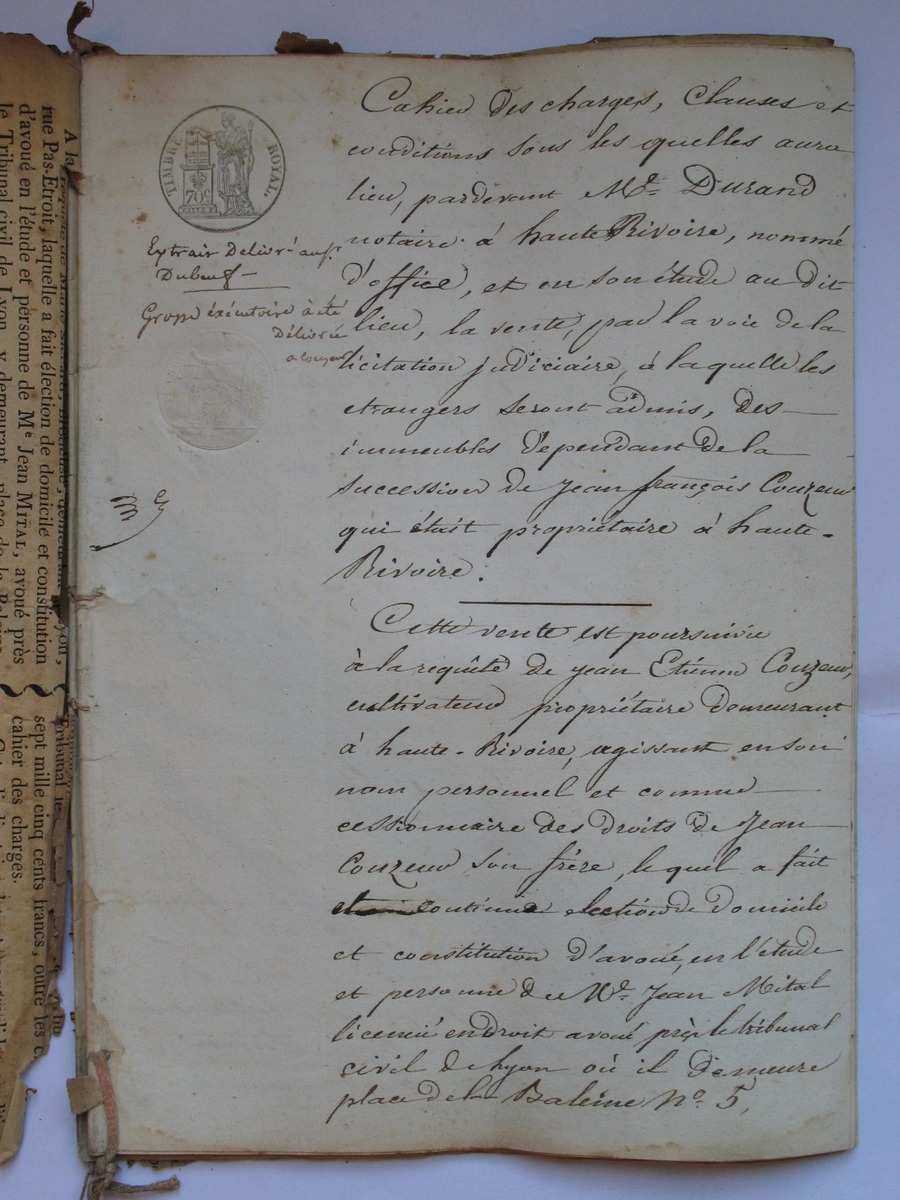 TIMBRE ROYAL.
70c
Extrait Délivré au sr.
Dubeuf
Grosse éxécutoire à été
Délivrée
a couzeu
Cahier des charges, clauses et
conditions sous les quelles aura
lieu, pardevant Me. Durand
notaire à haute Rivoire, nommé
d'office, et en son étude au dit
lieu, la vente, par la voie de la
licitation judiciaire, à laquelle les
etrangers seront admis, des
immeubles dépendant de la
succession de Jean françois Couzeux
qui était propriétaire à haute-
Rivoire.
Cette vente est poursuivie
à la requête de jean Etienne Couzeux,
cultivateur propriétaire demeurant
à haute-Rivoire, agissant en son
nom personnel et comme
cessionnaire des droits de Jean
Couzeux son frère, lequel a fait
et continue election de domicile
et constitution d'avoué, en l'étude
et personne de Me. Jean Mital
licencié en droit avoué près le tribunal
civil de Lyon où il demeure
place de la Baleine No. 5,
A la requête de Marie
rue Pas-Etroit, laquelle a fait élection de domicile et constitution
d'avoué en l'étude et personne de Me Jean MITAL, avoué près
le Tribunal civil de Lyon, y demeurant, place de la Baleine
sept mille cinq cents francs, outre les c
cahier des charges.